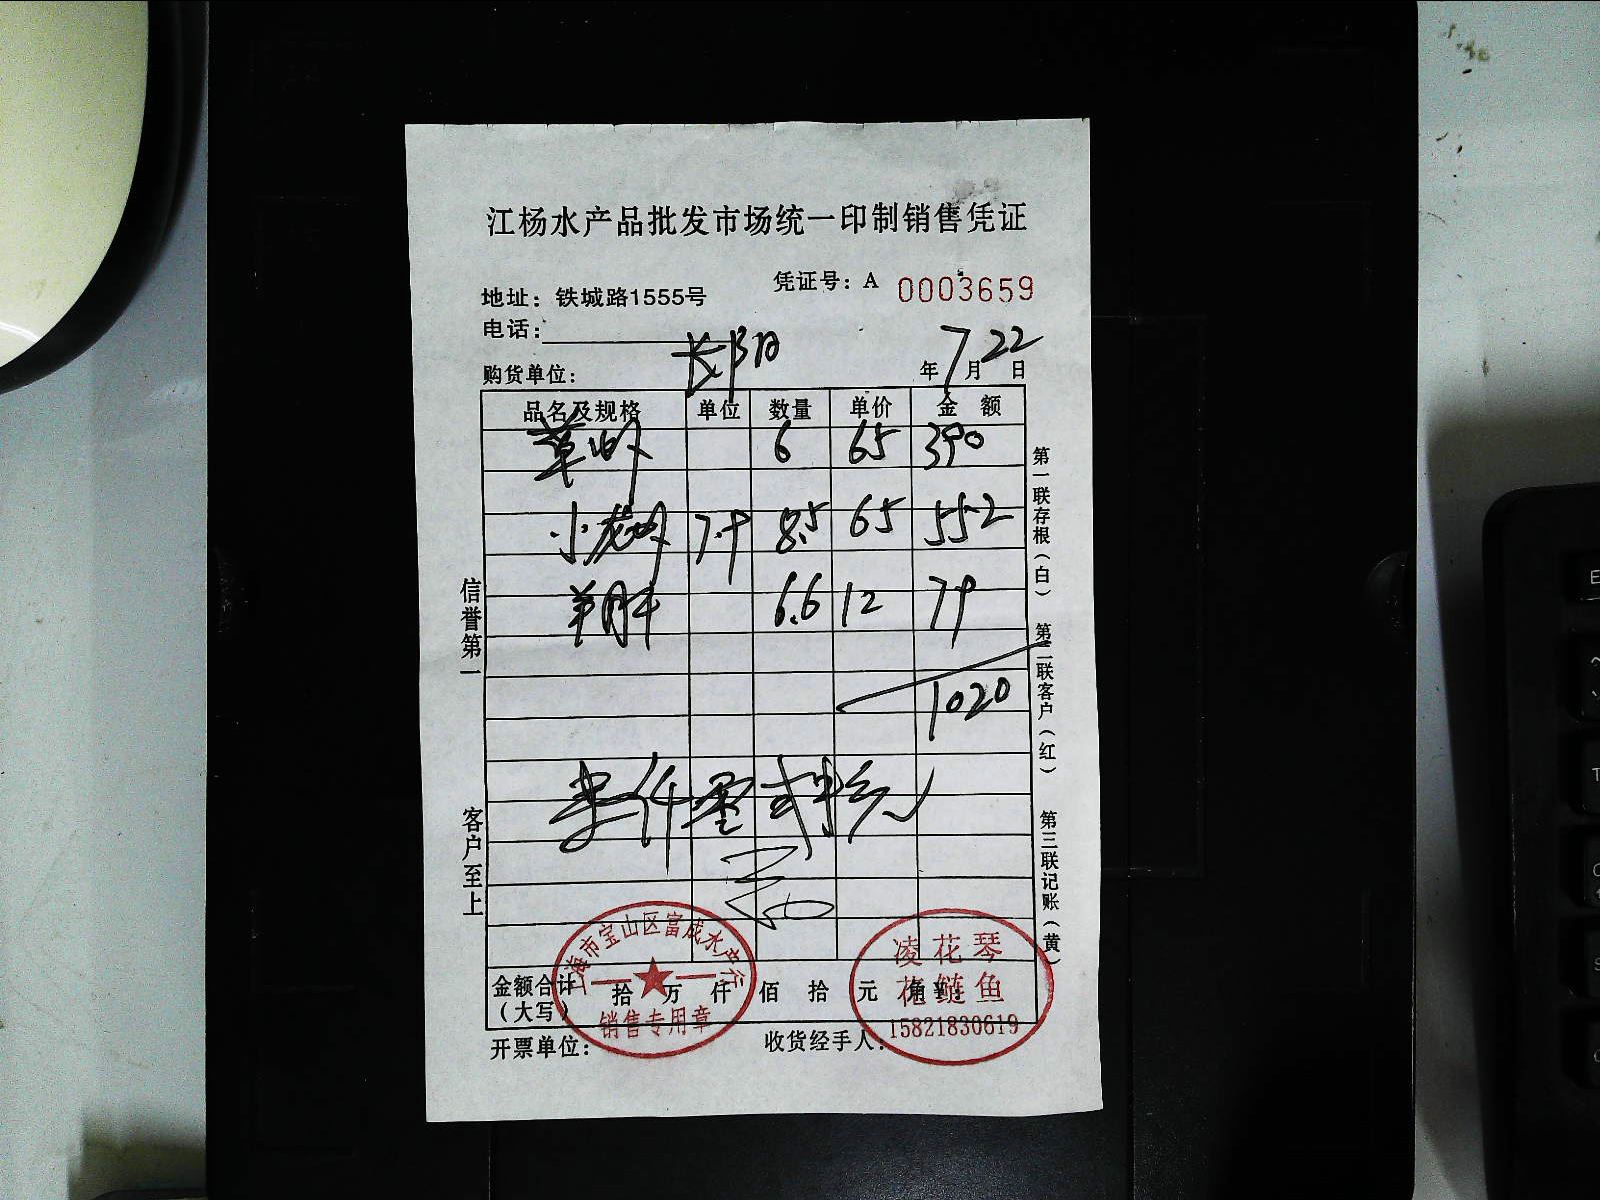 江杨水产品批发市场统一印制销售凭证
凭证号：A 0003659
地址：铁城路1555号
电话：
购货单位： 长阳 年7月22日
品名及规格 单位 数量 单价 金额
草虾 6 65 390
小龙虾 7.9 8.5 65 552
羊肝 6.6 12 79
1020
壹仟零贰拾元
金额合计（大写） 拾 万 仟 佰 拾 元 角
开票单位： 收货经手人：
信誉第一
客户至上
第一联存根（白）
第二联客户（红）
第三联记账（黄）
上海市宝山区富成水产行
销售专用章
凌花琴
花鲢鱼
15821830619